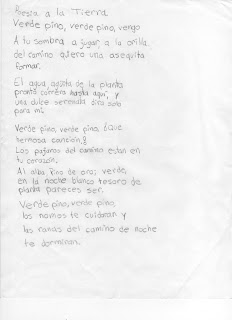 Poesía a la Tierra
Verde pino, verde pino, vengo
A tu sombra a jugar, a la orilla
del camino quiero una asequita
formar.
El agua, agüita de la planta
pronto correra hasta aquí, y
una dulce serenata dira solo
para mi.
Verde pino, verde pino, ¿que
hermosa canción?
Los pajaros del camino estan en
tu corazón.
Al alba, pino de oro; verde,
en la noche blanco tesoro de
planta pareces ser.
Verde pino, verde pino,
los nomos te cuidaran y
las ranas del camino de noche
te dormiran.